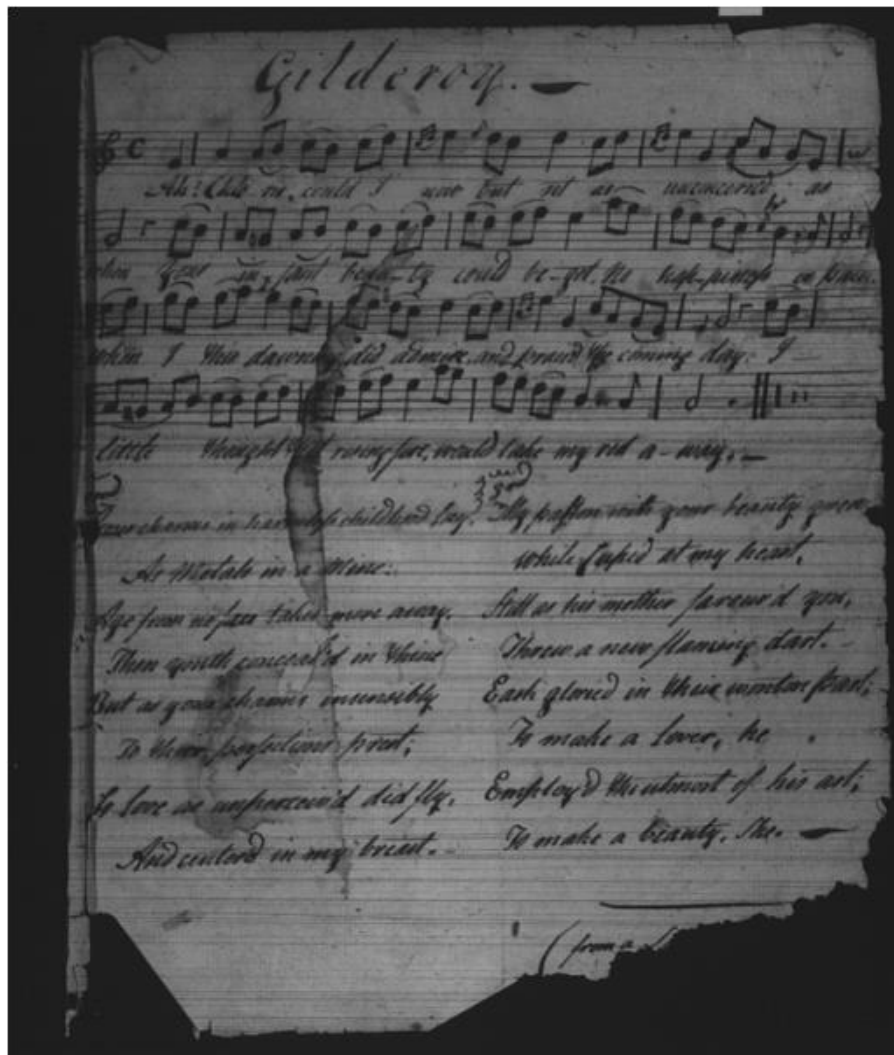 Gilderoy.
Ah! Chlo-ris, could I now but sit as unconcern'd, as
when Your in-fant beau-ty could be-get, No hap-piness or pain.
When I this dawning did admire, and prais'd the coming day; I
little thought that rising fire, would take my rest a-way.
Your charms in harmless childhood lay,
As Metals in a Mine:
Age from no face takes more away.
Then youth conceal'd in thine
But as your charms insensibly
To their perfections prest;
So love as unperceiv'd did fly,
And center'd in my breast.
3rd
My passion with your beauty grew
While Cupid at my heart,
Still as his mother favour'd you,
Threw a new flaming dart.
Each gloried in their wanton part;
To make a lover, he
Employ'd the utmost of his art;
To make a beauty, She.
(from a